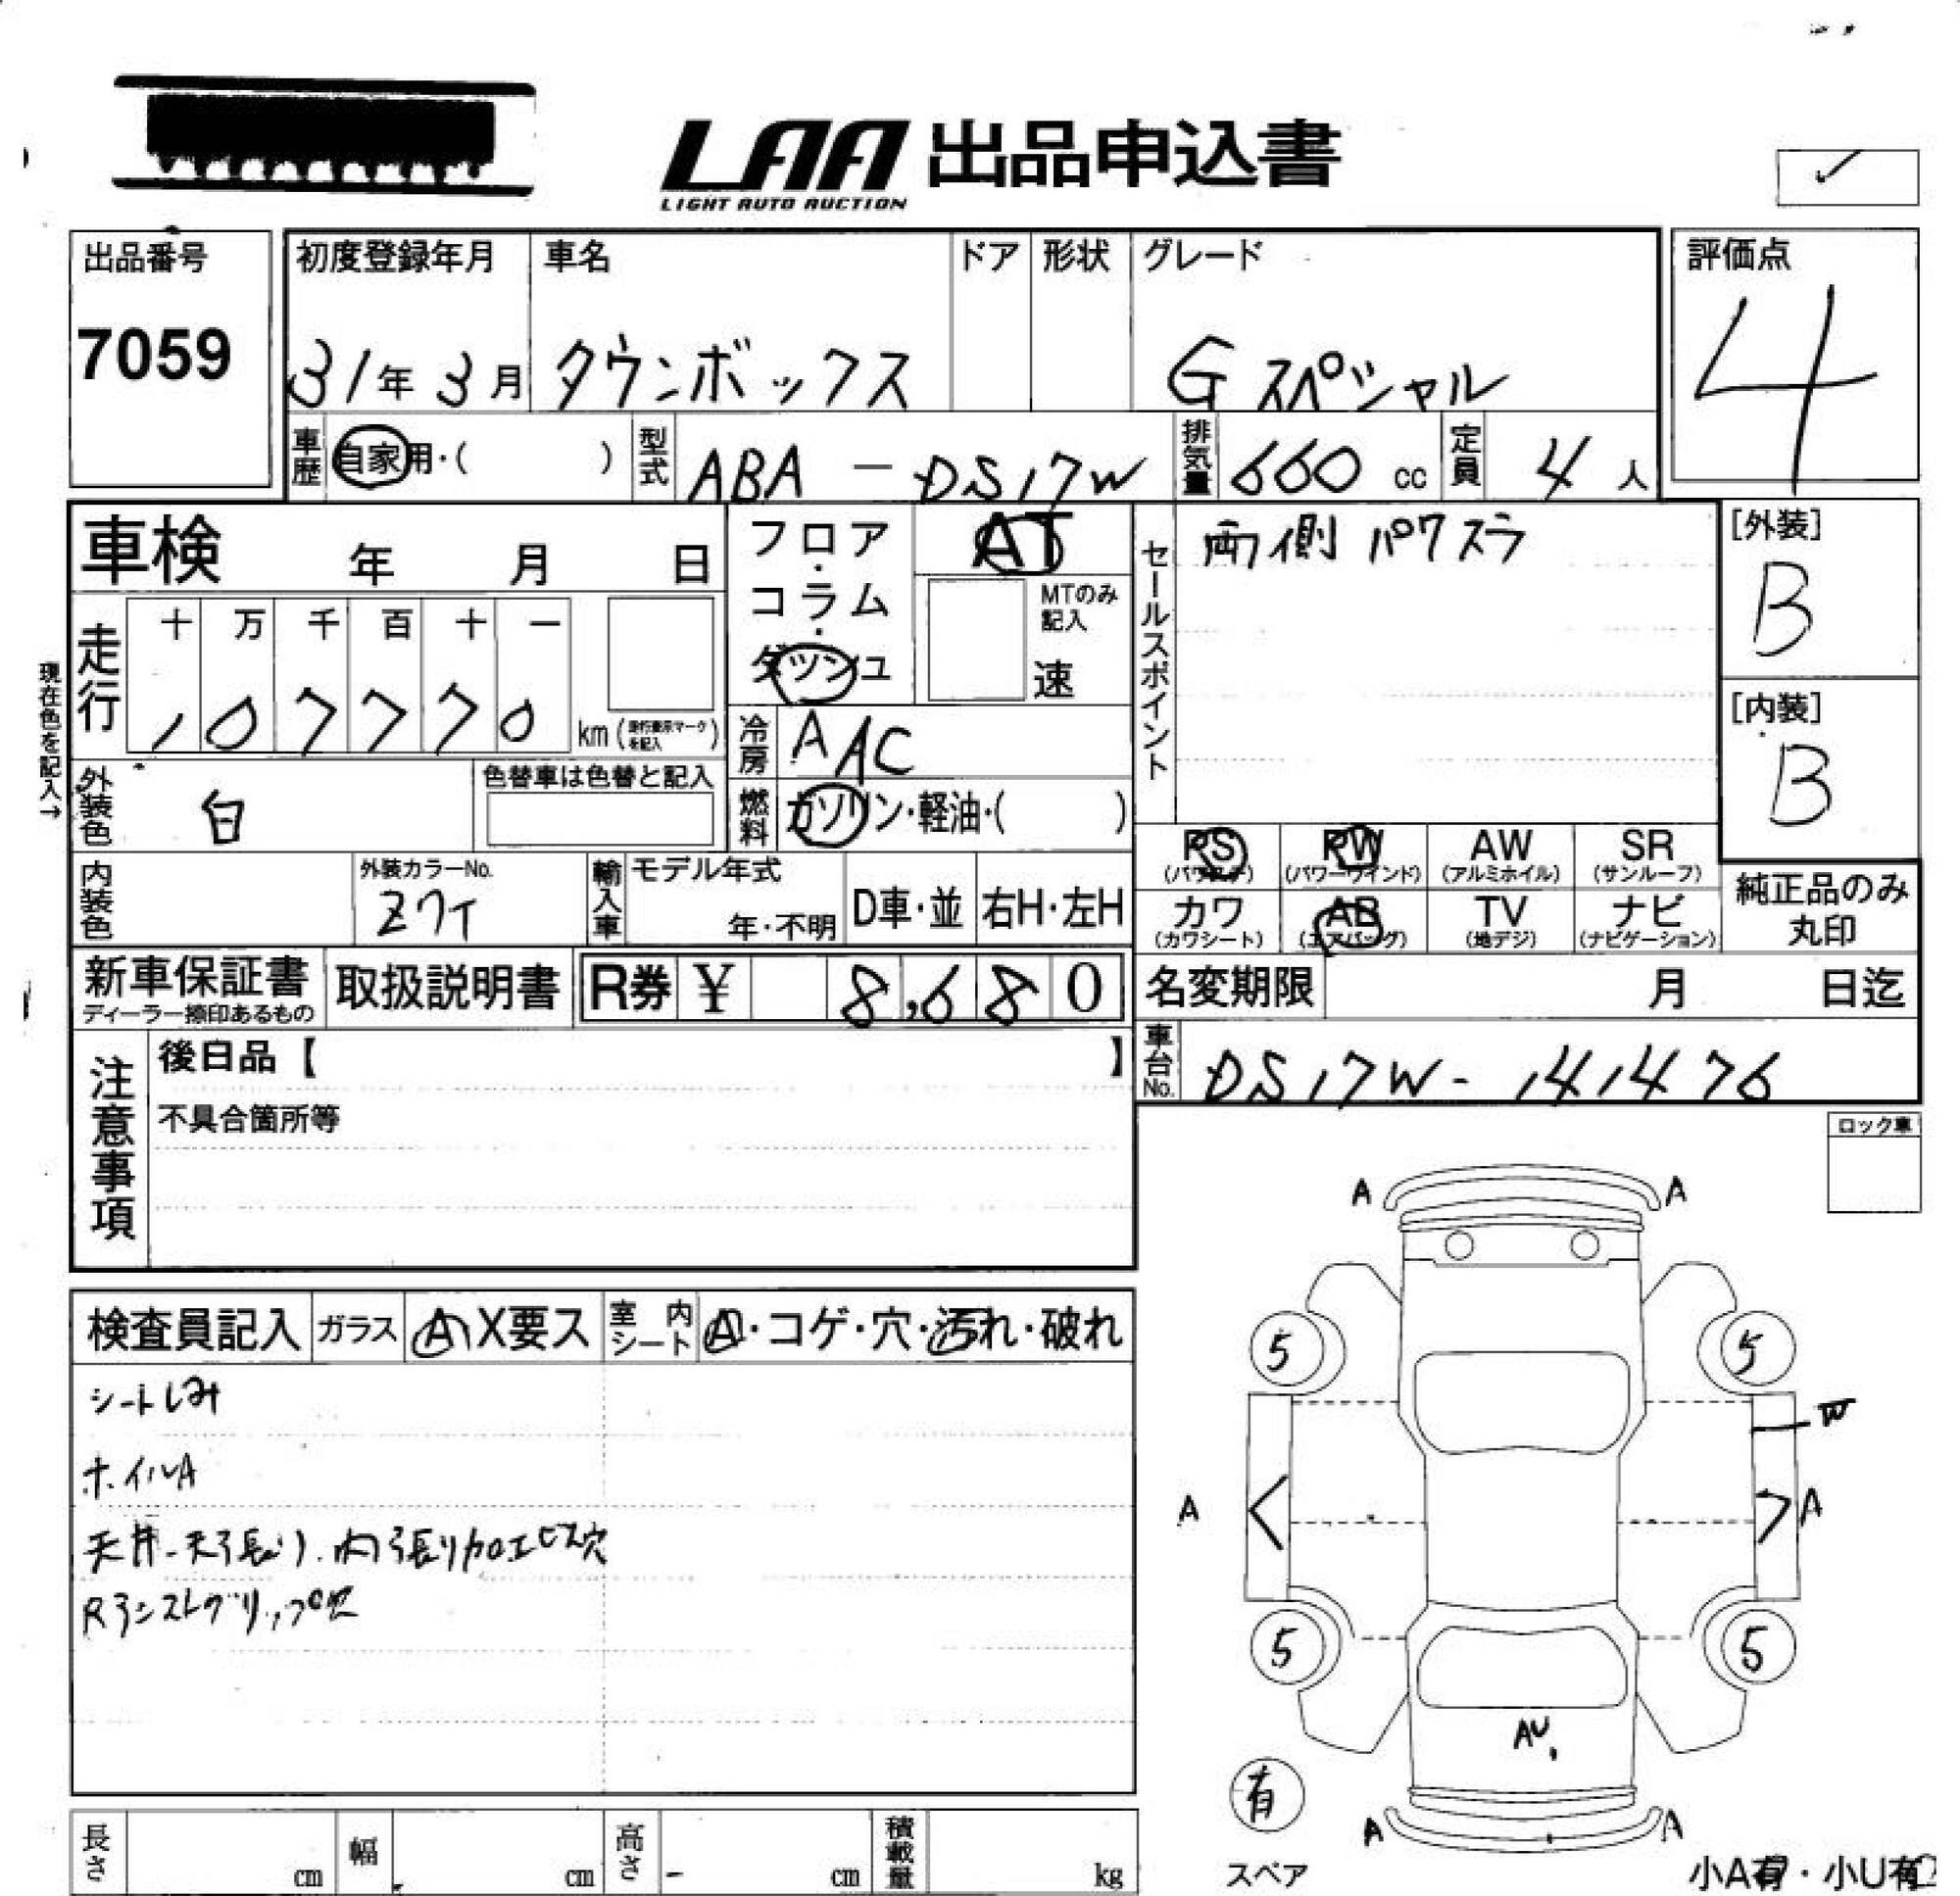 LAA 出品申込書
LIGHT AUTO AUCTION
出品番号
7059
初度登録年月
31年 3月
車名
タウンボックス
ドア
形状
グレード
Gスペシャル
評価点
4
車歴
自家用・( )
型式
ABA - DS17W
排気量
660 cc
定員
4 人
車検 年 月 日
走行
十 万 千 百 十 一
1 0 7 7 7 0
km (走行表示マークを記入)
現在色を記入→
外装色
白
色替車は色替と記入
フロア・コラム・ダッシュ
AT
MTのみ記入
速
冷房
AAC
燃料
ガソリン・軽油・( )
セールスポイント
両側パワスラ
[外装]
B
[内装]
B
PS PW AW SR
(パワステ) (パワーウインド) (アルミホイル) (サンルーフ)
カワ AB TV ナビ
(カワシート) (エアバッグ) (地デジ) (ナビゲーション)
純正品のみ
丸印
内装色
外装カラーNo.
Z7T
輸入車
モデル年式
年・不明
D車・並
右H・左H
新車保証書
ディーラー捺印あるもの
取扱説明書
R券 ¥ 8,680
名変期限 月 日迄
車台No.
DS17W-141476
注意事項
後日品【 】
不具合箇所等
ロック車
検査員記入
ガラス
A X要ス
室内シート
A・コゲ・穴・汚れ・破れ
シートしみ
ホイルA
天井-天張り.内張り加工ビス穴
A A
5 5
W
A A
5 5
AU,
有
スペア
A A
小A有・小U有
長さ cm
幅 cm
高さ - cm
積載量 kg